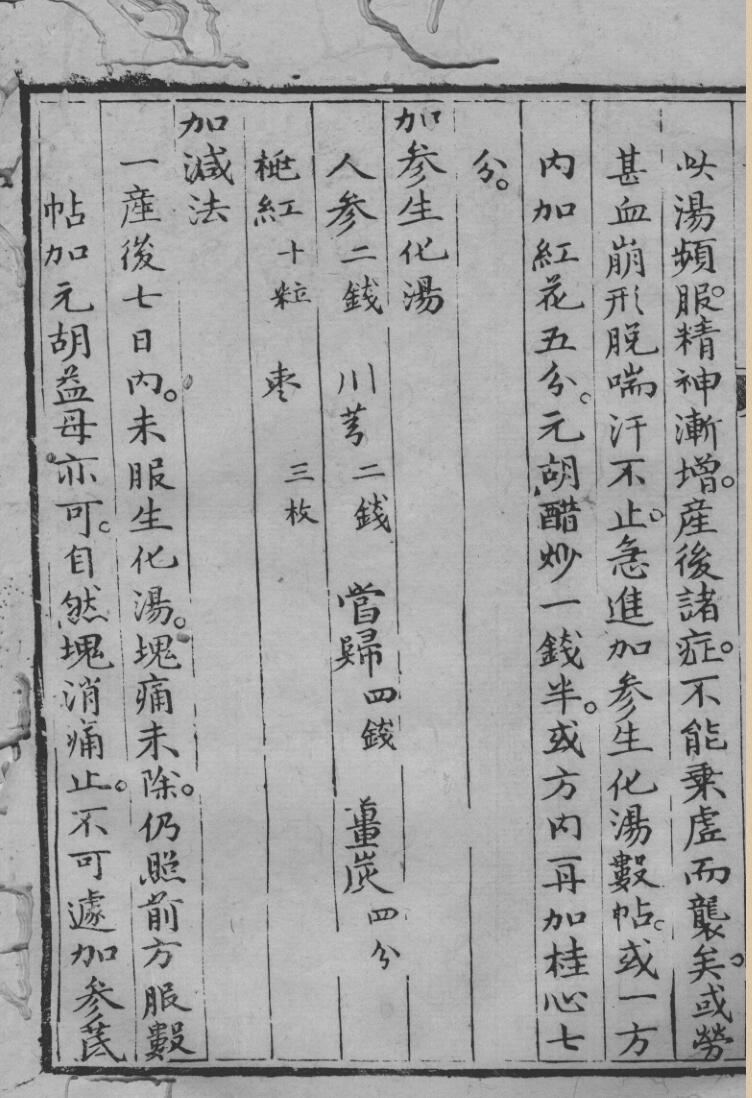 此湯頻服。精神漸增。產後諸症。不能乗虛而襲矣。或勞
甚血崩形脫喘汗不止。急進加参生化湯數帖。或一方
内加紅花五分。元胡醋炒一錢半。或方内再加桂心七
分。
加参生化湯
人参二錢 川芎二錢 當歸四錢 薑炭四分
桃紅十粒 枣三枚
加減法
一產後七日內。未服生化湯。塊痛未除。仍照前方服數
帖加元胡益母亦可。自然塊消痛止。不可遽加参芪